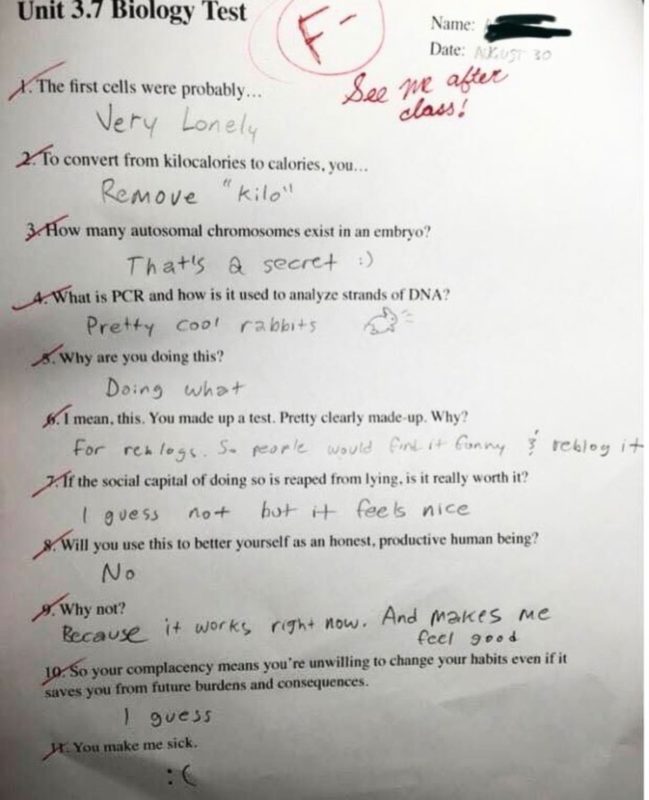 Unit 3.7 Biology Test
F-
Name:
Date: AUGUST 30
See me after
class!
1. The first cells were probably...
Very Lonely
2. To convert from kilocalories to calories, you...
Remove "kilo"
3. How many autosomal chromosomes exist in an embryo?
That's a secret :)
4. What is PCR and how is it used to analyze strands of DNA?
Pretty cool rabbits
5. Why are you doing this?
Doing what
6. I mean, this. You made up a test. Pretty clearly made-up. Why?
For reblogs. So people would find it funny & reblog it
7. If the social capital of doing so is reaped from lying, is it really worth it?
I guess not but it feels nice
8. Will you use this to better yourself as an honest, productive human being?
No
9. Why not?
Because it works right now. And makes me
feel good
10. So your complacency means you're unwilling to change your habits even if it
saves you from future burdens and consequences.
I guess
11. You make me sick.
:(